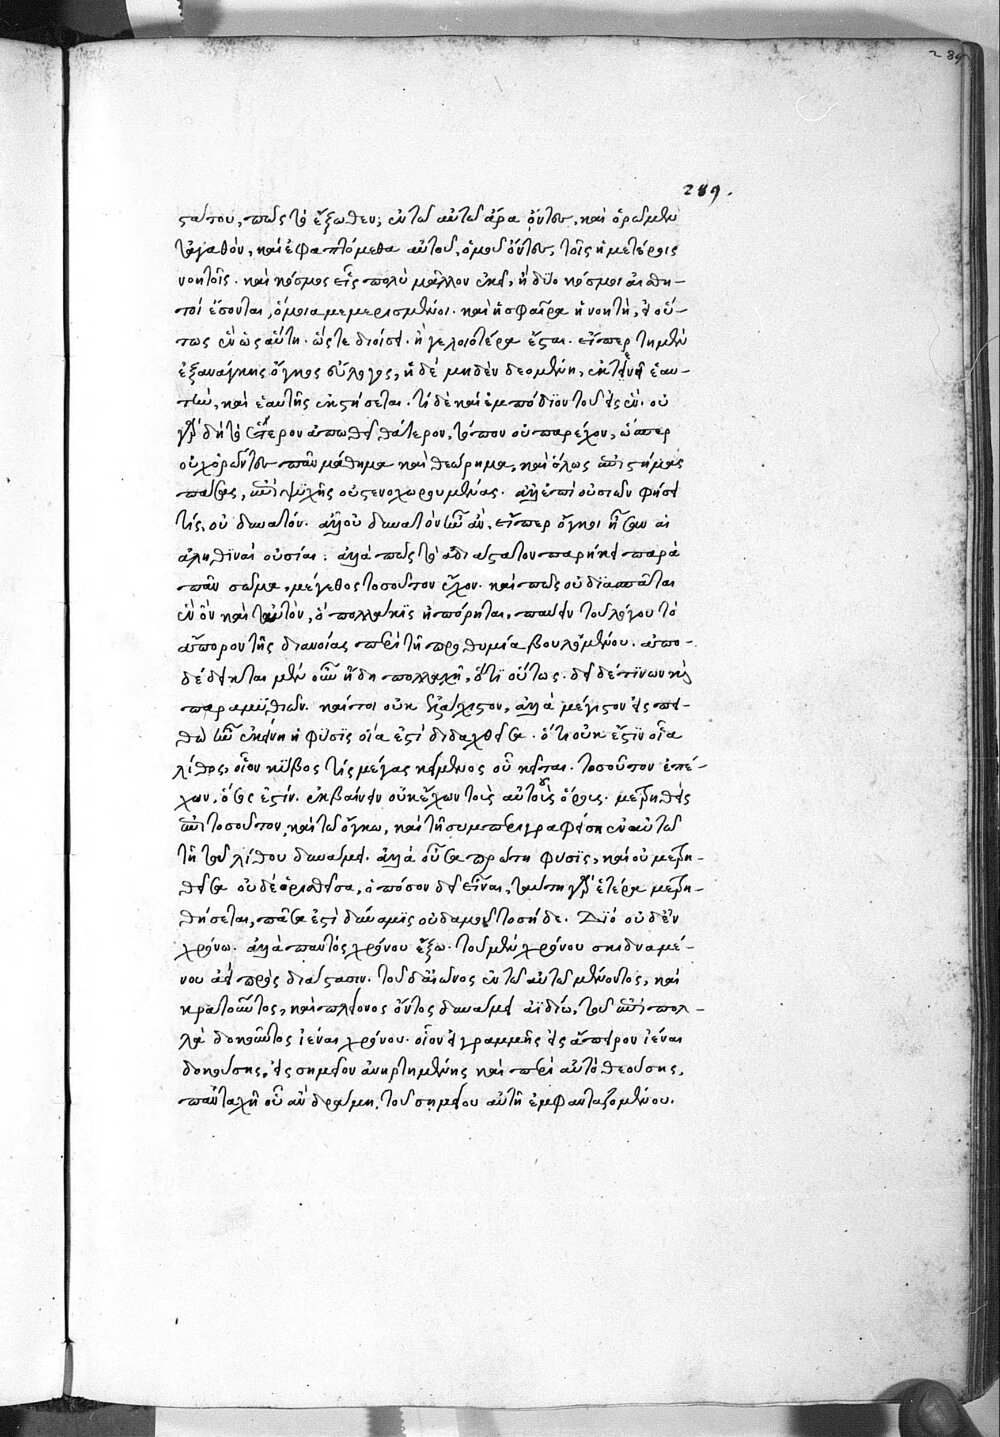 289
289.
στάτου, πῶς τὸ ἔξωθεν; ἐν τῷ αὐτῷ ἄρα ὄντες, καὶ ὁρῶμεν
τἀγαθὸν, καὶ ἐφαπτόμεθα αὐτοῦ, ὁμοῦ ὄντες, τοῖς ἡμετέροις
νοητοῖς. καὶ κόσμος εἷς πολὺ μᾶλλον ἐκεῖ, ἢ δύο κόσμοι αἰσθη-
τοὶ ἔσονται, ὅμοια μεμερισμένοι. καὶ ἡ σφαῖρα ἡ νοητὴ, εἰ οὕ-
τως ἓν ὡς αὕτη. ὥστε διοίσει. ἢ γελοιοτέρα ἔσται. εἴπερ τῇ μὲν
ἐξ ἀνάγκης ὄγκος εὔλογος, ἡ δὲ μηδὲν δεομένη, ἐκτενεῖ ἑαυ-
τὴν, καὶ ἑαυτῆς ἐκστήσεται. τί δὲ καὶ ἐμπόδιον τοῦ εἰς ἕν. οὐ
γὰρ δὴ τὸ ἕτερον ἀπωθεῖ θάτερον, τόπον οὐ παρέχον, ὥσπερ
οὐχ ὁρῶντες πᾶν μάθημα καὶ θεώρημα, καὶ ὅλως ἐπιστήμας
πάσας, ἐπὶ ψυχῆς οὐ στενοχωρουμένας. ἀλλ' ἐπὶ οὐσιῶν φήσει
τίς, οὐ δυνατόν. ἀλλ' οὐ δυνατὸν ἦν ἂν, εἴπερ ὄγκοι ἦσαν αἱ
ἀληθιναὶ οὐσίαι: ἀλλὰ πῶς τὸ ἀδιάστατον παρήκει παρὰ
πᾶν σῶμα, μέγεθος τοσοῦτον ἔχον. καὶ πῶς οὐ διασπᾶται
ἓν ὂν καὶ ταυτὸν, ὃ πολλάκις ἠπόρηται, παύειν τοῦ λόγου τὸ
ἄπορον τῆς διανοίας περιττῇ προθυμίᾳ βουλομένου. ἀπο-
δέδεικται μὲν οὖν ἤδη πολλαχῇ, ὅτι οὕτως. δεῖ δέ τινων καὶ
παραμυθιῶν. καίτοι οὐκ ἐλάχιστον, ἀλλὰ μέγιστον εἰς πει-
θὼ ἦν ἐκείνη ἡ φύσις οἵα ἐστὶ διδαχθεῖσα. ὅτι οὐκ ἔστιν οἷα
λίθος, οἷον κύβος τίς μέγας κείμενος οὗ κεῖται. τοσοῦτον ἐπέ-
χων, ὅσος ἐστίν. ἐκβαίνειν οὐκ ἔχων τοὺς αὐτοῦ ὅρους. μετρηθεὶς
ἐπὶ τοσοῦτον, καὶ τῷ ὄγκῳ, καὶ τῇ συμπεριγραφείσῃ ἐν αὐτῷ
τῇ τοῦ λίθου δυνάμει. ἀλλὰ οὖσα πρώτη φύσις, καὶ οὐ μετρη-
θεῖσα οὐδὲ ὁρισθεῖσα, ὁπόσον δεῖ εἶναι, ταύτῃ γὰρ ἑτέρᾳ μετρη-
θήσεται, πᾶσα ἐστὶ δύναμις οὐδαμοῦ τοσήδε. Διὸ οὐδ' ἐν
χρόνῳ. ἀλλὰ παντὸς χρόνου ἔξω. τοῦ μὲν χρόνου σκιδναμέ-
νου ἀεὶ πρὸς διάστασιν. τοῦ δ' αἰῶνος ἐν τῷ αὐτῷ μένοντος, καὶ
κρατοῦντος, καὶ πλείονος ὄντος δυνάμει ἀϊδίῳ, τοῦ ἐπὶ πολ-
λὰ δοκοῦντος ἰέναι χρόνου. οἷον εἰ γραμμῆς εἰς ἄπειρον ἰέναι
δοκούσης, εἰς σημεῖον ἀνηρτημένης καὶ περὶ αὐτὸ θεούσης,
πανταχῇ οὗ ἂν δράμῃ, τοῦ σημείου αὐτῇ ἐμφανταζομένου.